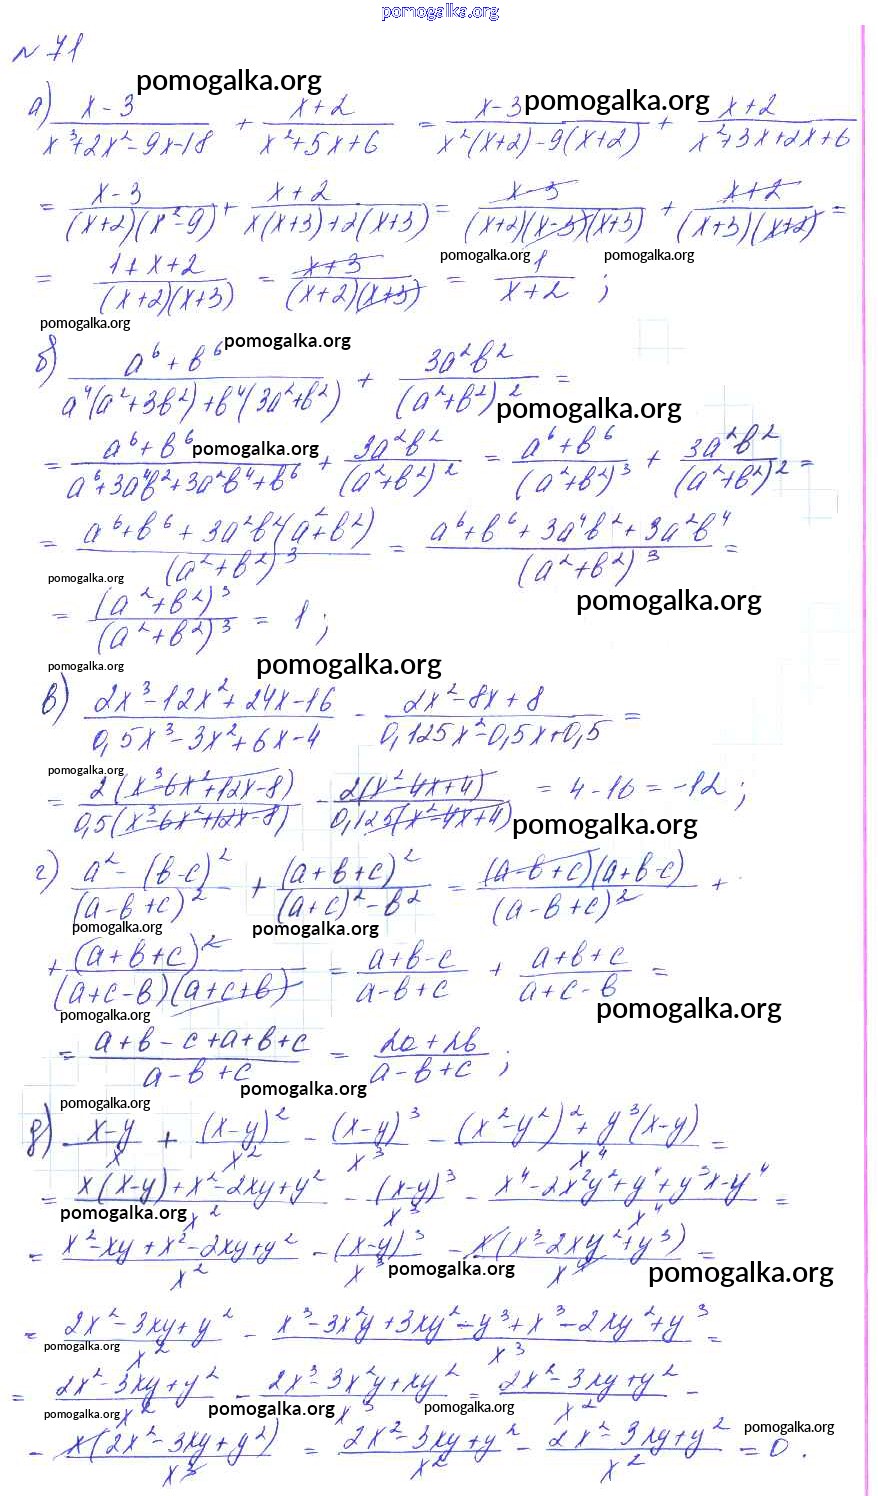 pomogalka.org
№ 71
pomogalka.org
а) (x-3)/(x³+2x²-9x-18) + (x+2)/(x²+5x+6) = (x-3)/(x²(x+2)-9(x+2)) + (x+2)/(x²+3x+2x+6)
pomogalka.org
= (x-3)/((x+2)(x²-9)) + (x+2)/(x(x+3)+2(x+3)) = (x-3)/((x+2)(x-3)(x+3)) + (x+2)/((x+3)(x+2)) =
pomogalka.org pomogalka.org
= (1+x+2)/((x+2)(x+3)) = (x+3)/((x+2)(x+3)) = 1/(x+2) ;
pomogalka.org
pomogalka.org
б) (a⁶+b⁶)/(a⁴(a²+3b²)+b⁴(3a²+b²)) + 3a²b²/(a²+b²)² =
pomogalka.org
pomogalka.org
= (a⁶+b⁶)/(a⁶+3a⁴b²+3a²b⁴+b⁶) + 3a²b²/(a²+b²)² = (a⁶+b⁶)/(a²+b²)³ + 3a²b²/(a²+b²)² =
= (a⁶+b⁶+3a²b²(a²+b²))/(a²+b²)³ = (a⁶+b⁶+3a⁴b²+3a²b⁴)/(a²+b²)³ =
pomogalka.org
pomogalka.org
= (a²+b²)³/(a²+b²)³ = 1 ;
pomogalka.org pomogalka.org
в) (2x³-12x²+24x-16)/(0,5x³-3x²+6x-4) - (2x²-8x+8)/(0,125x²-0,5x+0,5) =
pomogalka.org
= 2(x³-6x²+12x-8)/(0,5(x³-6x²+12x-8)) - 2(x²-4x+4)/(0,125(x²-4x+4)) = 4-16 = -12 ;
pomogalka.org
г) (a²-(b-c)²)/(a-b+c)² + (a+b+c)²/((a+c)²-b²) = (a-b+c)(a+b-c)/(a-b+c)² +
pomogalka.org pomogalka.org
+ (a+b+c)²/((a+c-b)(a+c+b)) = (a+b-c)/(a-b+c) + (a+b+c)/(a+c-b) =
pomogalka.org pomogalka.org
= (a+b-c+a+b+c)/(a-b+c) = (2a+2b)/(a-b+c) ;
pomogalka.org
pomogalka.org
д) (x-y)/x + (x-y)²/x² - (x-y)³/x³ - ((x²-y²)²+y³(x-y))/x⁴ =
= (x(x-y)+x²-2xy+y²)/x² - (x-y)³/x³ - (x⁴-2x²y²+y⁴+y³x-y⁴)/x⁴ =
pomogalka.org
= (x²-xy+x²-2xy+y²)/x² - (x-y)³/x³ - x(x³-2xy²+y³)/x⁴ =
pomogalka.org pomogalka.org
= (2x²-3xy+y²)/x² - (x³-3x²y+3xy²-y³+x³-2xy²+y³)/x³ =
pomogalka.org
= (2x²-3xy+y²)/x² - (2x³-3x²y+xy²)/x³ = (2x²-3xy+y²)/x² -
pomogalka.org pomogalka.org pomogalka.org
- x(2x²-3xy+y²)/x³ = (2x²-3xy+y²)/x² - (2x²-3xy+y²)/x² = 0 .
pomogalka.org